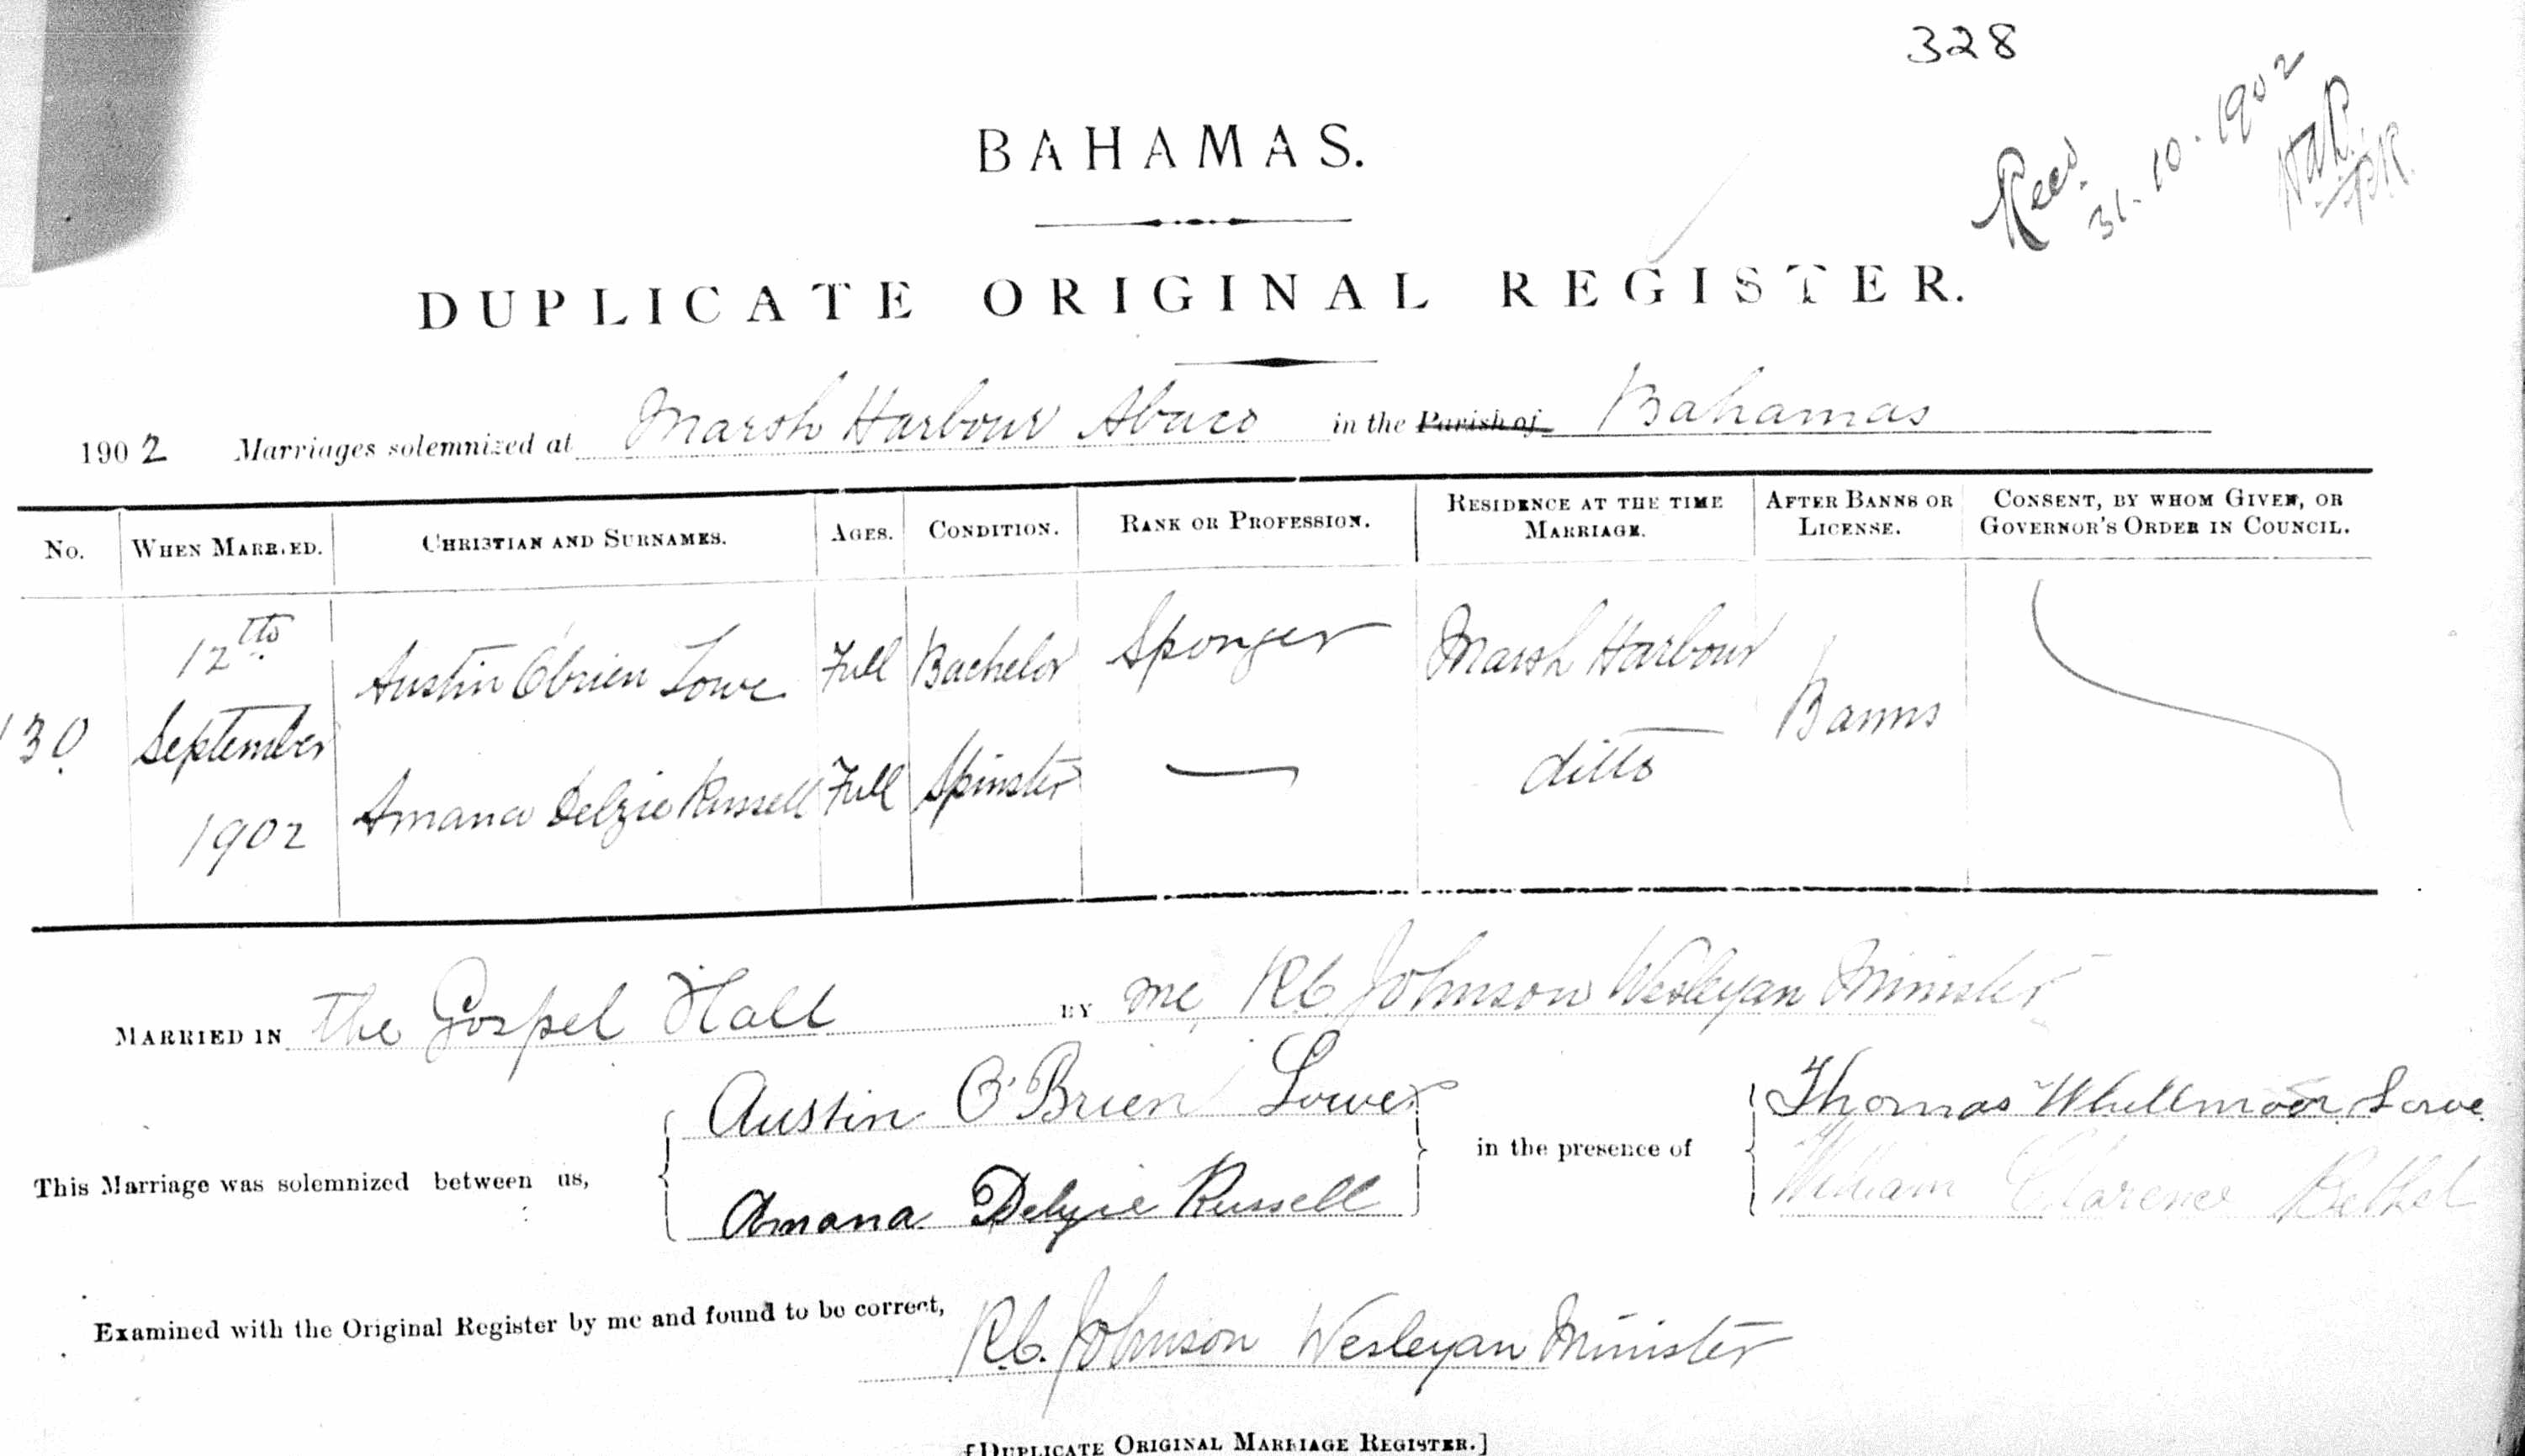 328
Recd. 31.10.1902
BAHAMAS.
DUPLICATE ORIGINAL REGISTER.
1902 Marriages solemnized at Marsh Harbour Abaco in the Parish of Bahamas
No. WHEN MARRIED. CHRISTIAN AND SURNAMES. AGES. CONDITION. RANK OR PROFESSION. RESIDENCE AT THE TIME MARRIAGE. AFTER BANNS OR LICENSE. CONSENT, BY WHOM GIVEN, OR GOVERNOR'S ORDER IN COUNCIL.
130 12th September 1902
Austin Obrien Lowe Full Bachelor Sponger Marsh Harbour Banns
Amana Delzie Russell Full Spinster — ditto
MARRIED IN The Gospel Hall BY me, R.C. Johnson Wesleyan Minister
This Marriage was solemnized between us,
Austin O'Brien Lowe
Amana Delzie Russell
in the presence of
Thomas Lowe
William Clarence Bethel
Examined with the Original Register by me and found to be correct,
R.C. Johnson Wesleyan Minister
[DUPLICATE ORIGINAL MARRIAGE REGISTER.]